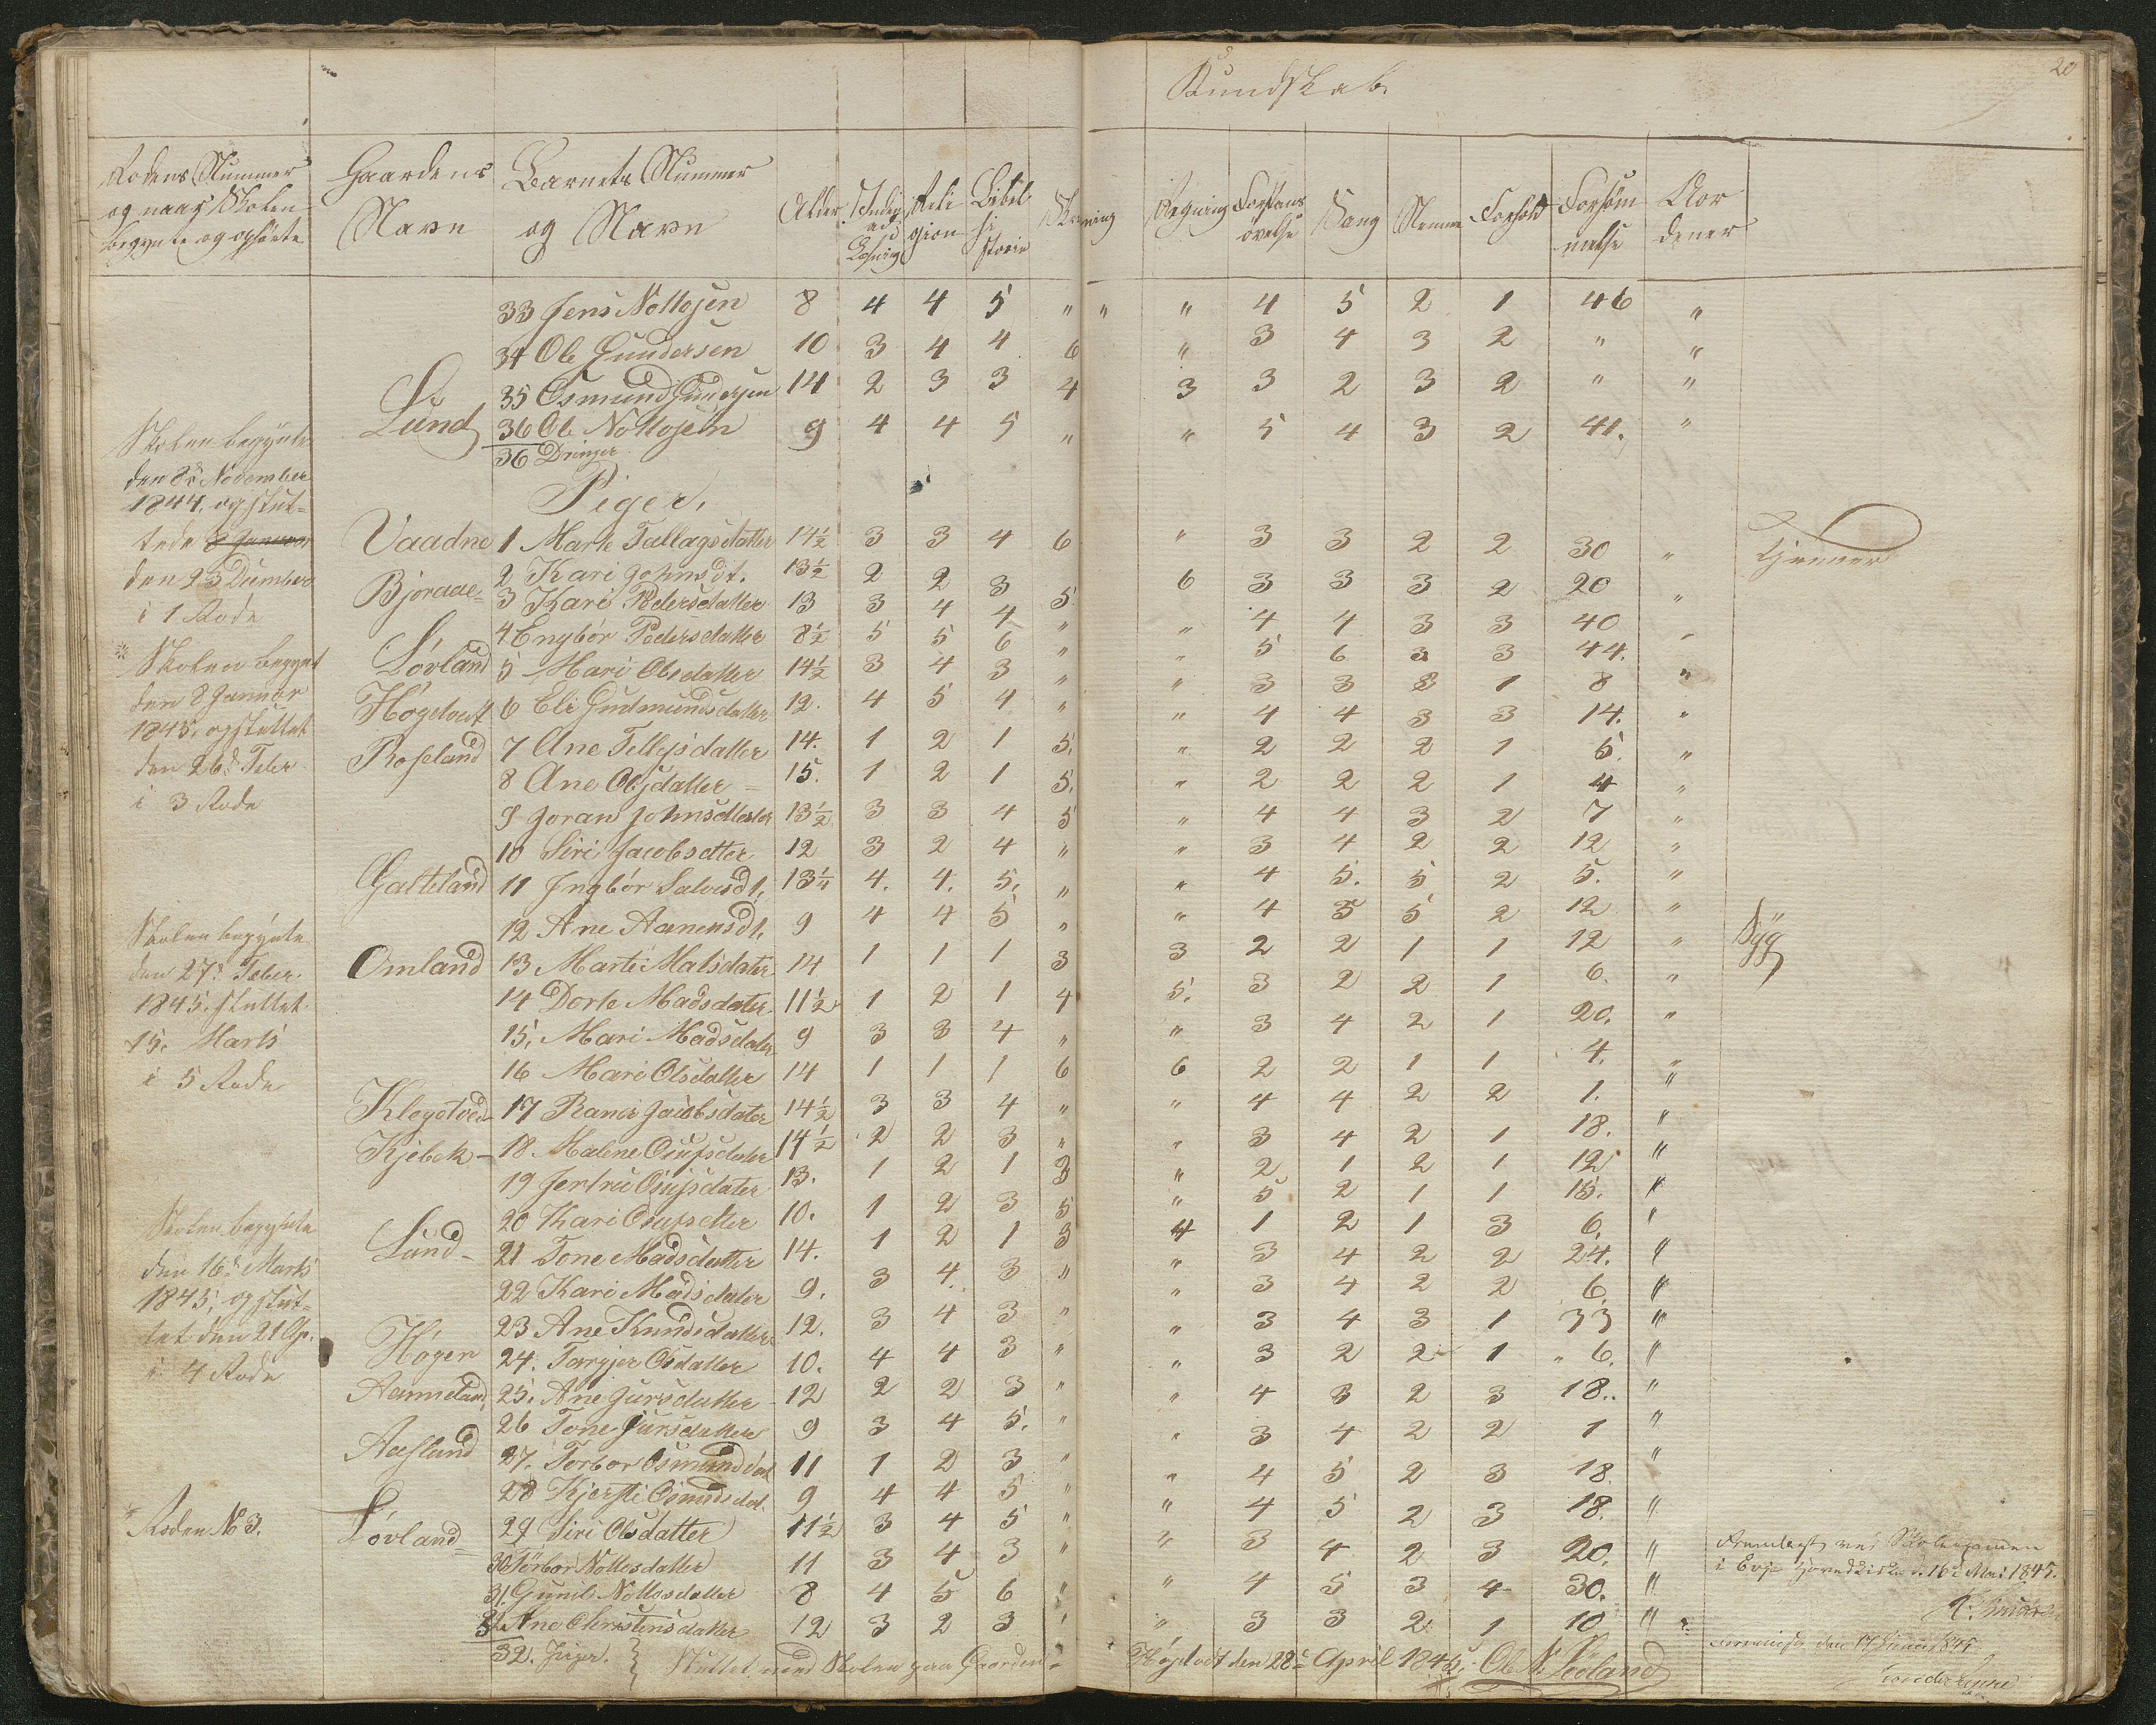 20
Kundskab.
Rodens Nummer
og naar Skolen
begynte og ophörte
Gaardens
Navn
Barnets Nummer
og Navn
Alder
Læsning
Reli
gion
Bibel
hi
storie
Skrivning
Regning
Forstands
övelse
Sang
Nemme
Forhold
Forsöm
melse
33 Jens Nottosen 8 4 4 5 " " " 4 5 2 1 46 "
34 Ole Gundersen 10 3 4 4 6 " 3 4 3 2 " "
35 Osmund Gundersen 14 2 3 3 4 3 3 2 3 2 " "
Lund 36 Ole Nottosen 9 4 4 5 " " 5 4 3 2 41. "
36 Drenger
Piger,
Skolen begynte
den 8de November
1844, og slut-
tede 8 Januar
den 23 Decmber
i 1 Rode
Vaadne 1 Marte Tallagsdatter 14½ 3 3 4 6 " 3 3 2 2 30 " Tjener
Bjoraae- 2 Kari Johnsdt. 13½ 2 2 3 5 6 3 3 3 2 20 "
3 Kari Pedersdatter 13 3 4 4 " " 4 4 3 3 40 "
4 Engbör Pedersdatter 8½ 5 5 6 " " 5 6 3 3 44. "
* Skolen begynt
den 8 Januar
1845, og sluttet
den 26d Feber
i 3 Rode
Lövland 5 Mari Olsdatter 14½ 3 4 3 " " 3 3 3 1 8 "
Högetvedt 6 Eli Gudmundsdatter 12. 4 5 4 " " 4 4 3 3 14. "
Roseland 7 Ane Tellefsdatter 14. 1 2 1 5. " 2 2 2 1 5. "
8 Ane Olsdatter 15. 1 2 1 5. " 2 2 2 1 4 "
9 Joran Johnsdtter 13½ 3 3 4 5 " 4 4 3 2 7 "
10 Siri Jacobsdtter 12 3 2 4 " " 3 4 2 2 12 "
Galteland 11 Ingbör Salvesdt. 13¼ 4. 4. 5. " " 4 5. 5. 2 5. "
12 Ane Aanensdt. 9 4 4 5 " " 4 5 5 2 12 "
Skolen begynte
den 27d Feber.
1845. sluttet
15. Marts
i 5 Rode
Omland 13 Marte Matsdater 14 1 1 1 3 3 2 2 1 1 12 " Syg
14 Dorte Madsdater 11½ 1 2 1 4 5. 3 2 2 1 6. "
15. Mari Madsdater 9 3 3 4 " " 3 4 2 1 20. "
16 Mari Olsdatter 14 1 1 1 6 6 2 2 1 1 4. "
Klegetved- 17 Raner Jacobsdater 14½ 3 3 4 " " 4 4 2 2 1. "
Kjebek- 18. Malene Osufsdater 14½ 2 2 3 " " 3 4 2 1 18. "
19 Jertrue Osufsdater 13. 1 2 1 3 " 2 1 2 1 12 "
20 Kari Osufsdtter 10. 1 2 3 5 " 5 2 1 1 15. "
Skolen begynte
den 16d Marts
1845, og slut-
tet den 21 Ap.
i 4 Rode
Lund- 21 Tone Madsdatter 14. 1 2 1 3 4 1 2 1 3 6. "
22 Kari Madsdater 9. 3 4 3 " " 3 4 2 2 24. "
23 Ane Knudsdatter 12. 3 4 3 " " 3 4 2 2 6. "
Högen 24. Torgjer Osdatter 10. 4 4 3 " " 3 4 3 1 33 "
Aanneland 25. Ane Jursdatter 12 2 2 3 " " 3 2 2 1 6. "
26 Tone Jursdatter 9 3 4 5. " " 4 3 2 3 18. "
Aasland 27. Torbor Osmunddat 11 1 2 3 " " 3 4 2 2 1 "
28 Kjersti Osmudsdat. 9 4 4 5 " " 4 5 2 3 18. "
* Roden No 3. Lövland- 29 Siri Olsdatter 11½ 3 4 5 " " 4 5 2 3 18. "
30 Torbor Nottosdatter 11 3 4 3 " " 3 4 2 3 20. "
31. Gunil Nottosdatter 8 4 5 6 " " 4 5 3 4 30. "
32. Ane Christensdatter 12 3 2 3 " " 3 3 2 1 10 "
32. Piger.
Sluttet med Skolen paa Gaarden- Högetvedt den 28de April 1845. Ole N. Lövland
Fremlagt ved Skoleexamen
i Evje Hovedkirke d. 16de Mai 1845.